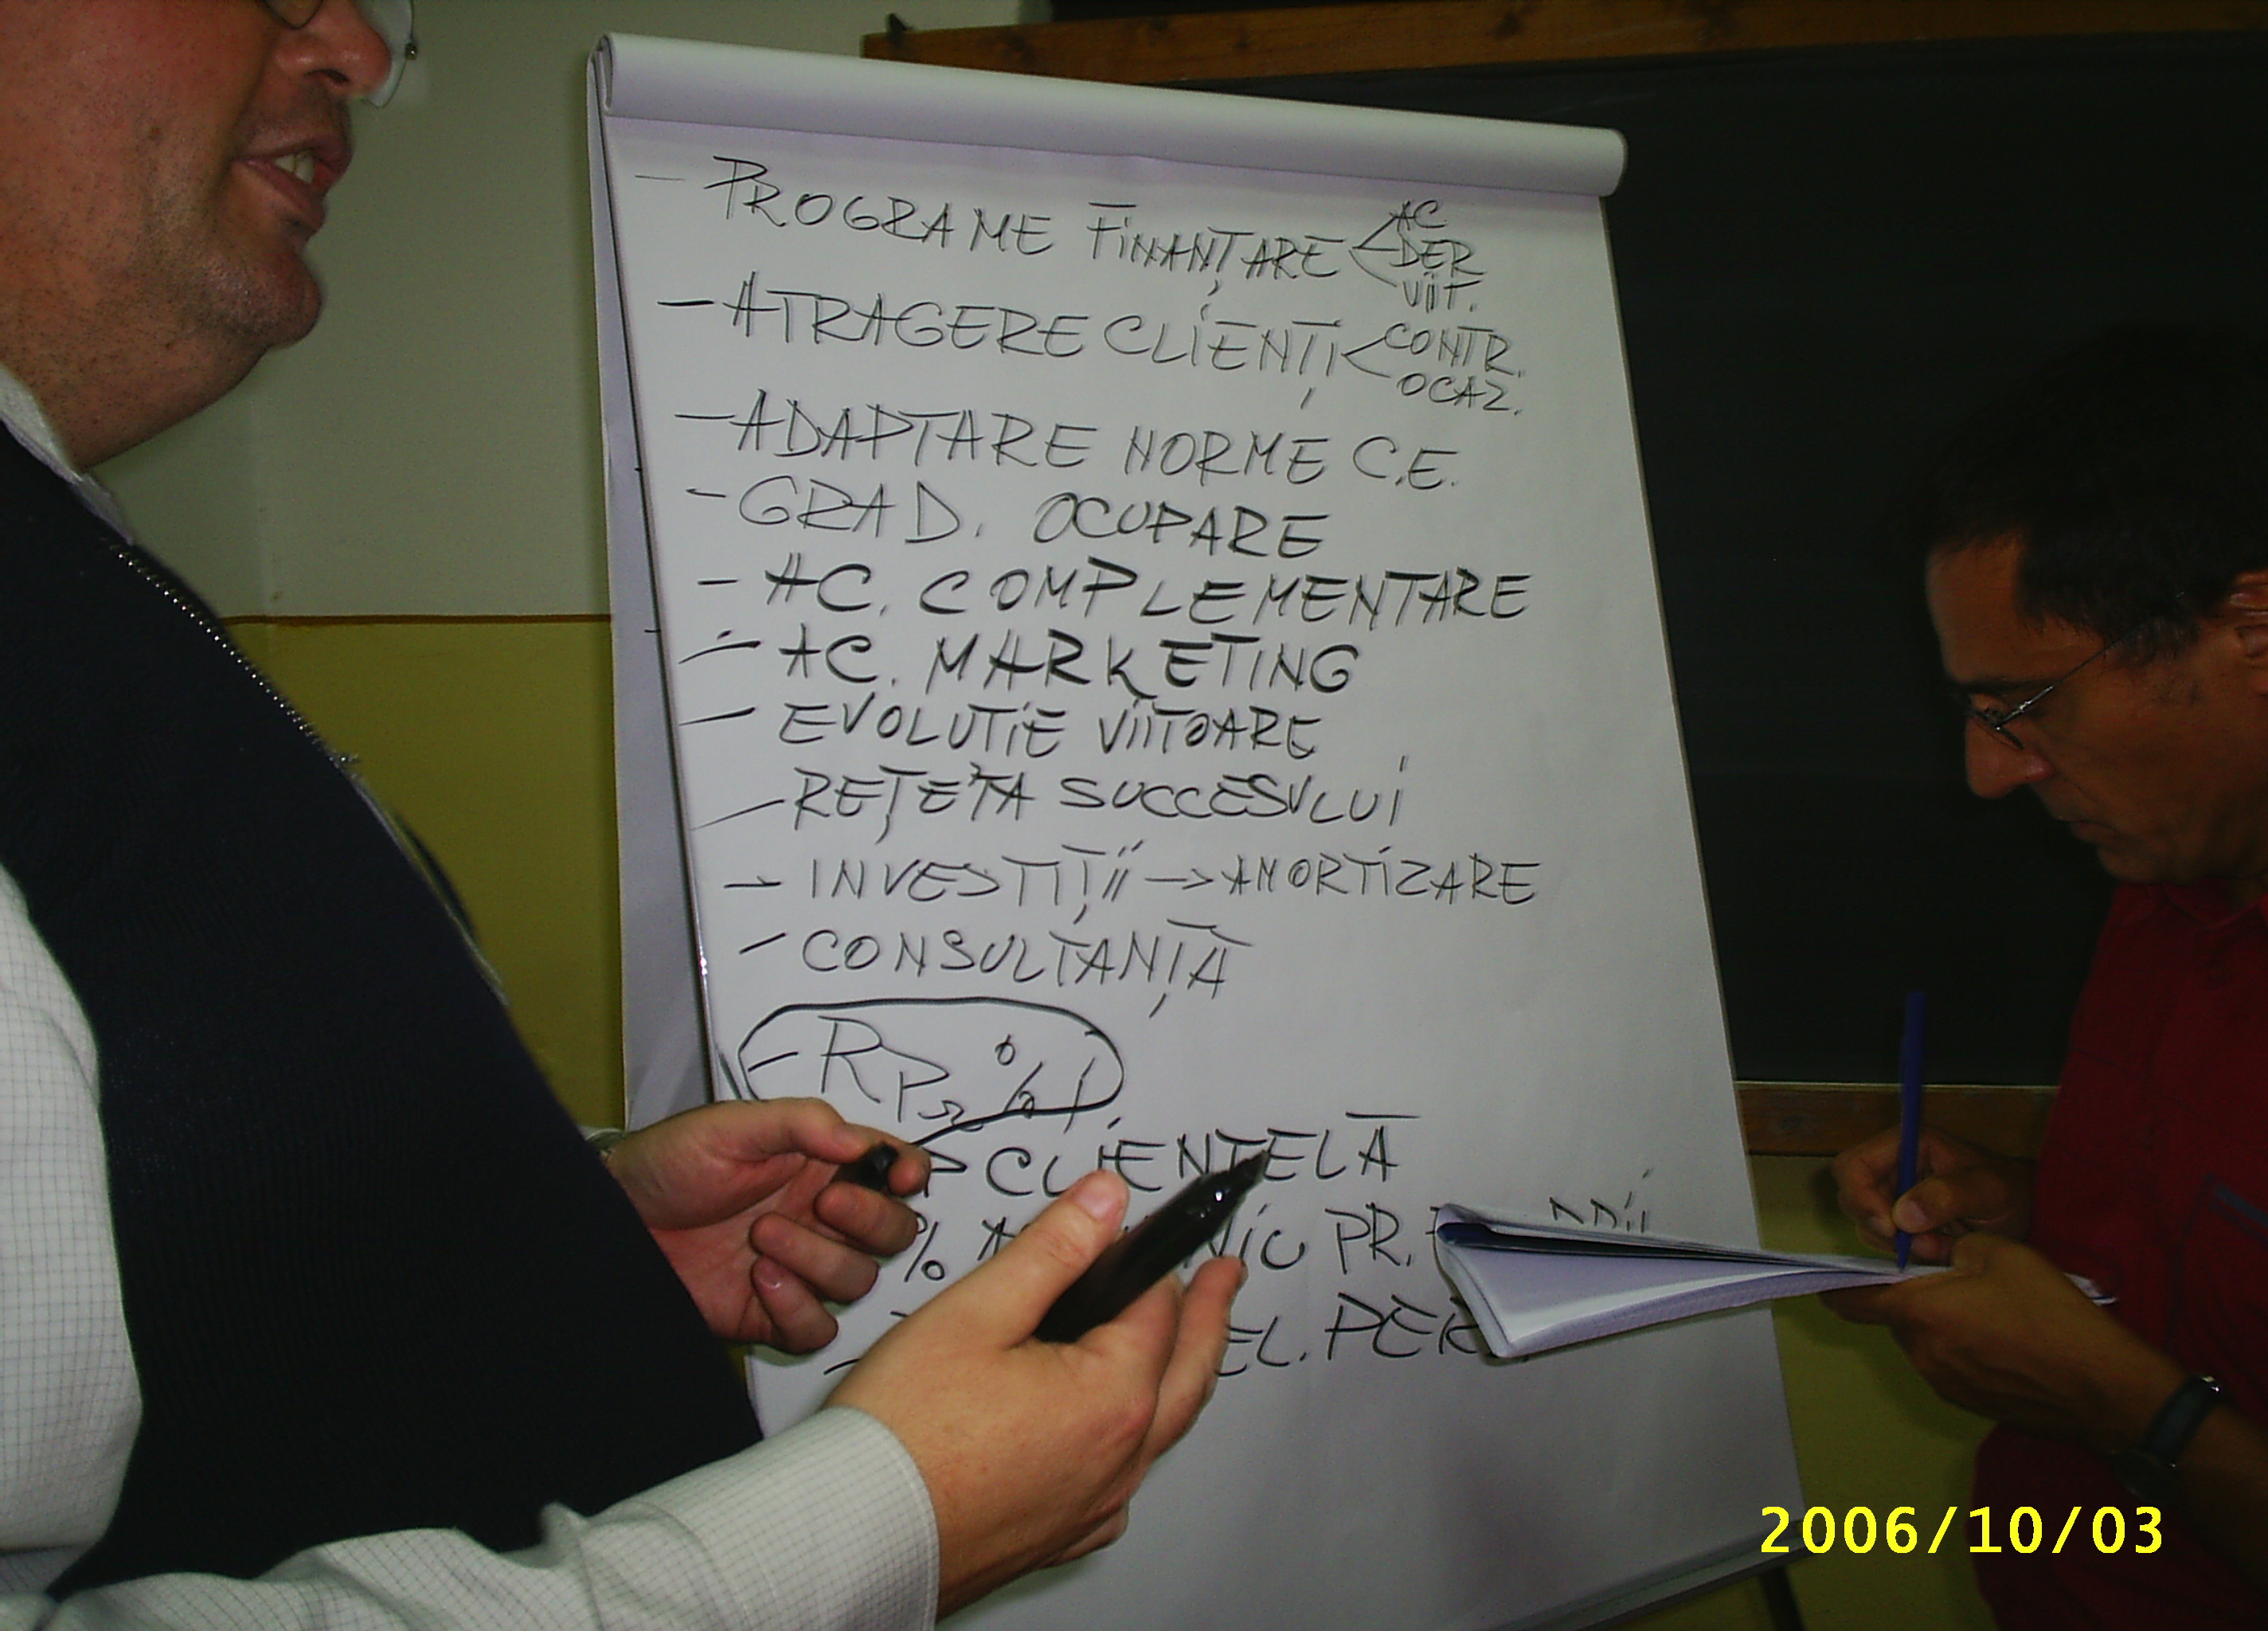 - PROGRAME FINANȚARE < AC
DER
VIIT.
- ATRAGERE CLIENȚI < CONTR.
OCAZ.
- ADAPTARE NORME C.E.
- GRAD. OCUPARE
- AC. COMPLEMENTARE
- AC. MARKETING
- EVOLUTIE VIITOARE
- REȚETA SUCCESULUI
- INVESTIȚII -> AMORTIZARE
- CONSULTANȚĂ
CLIENTELĂ
% PR.
EL.
2006/10/03